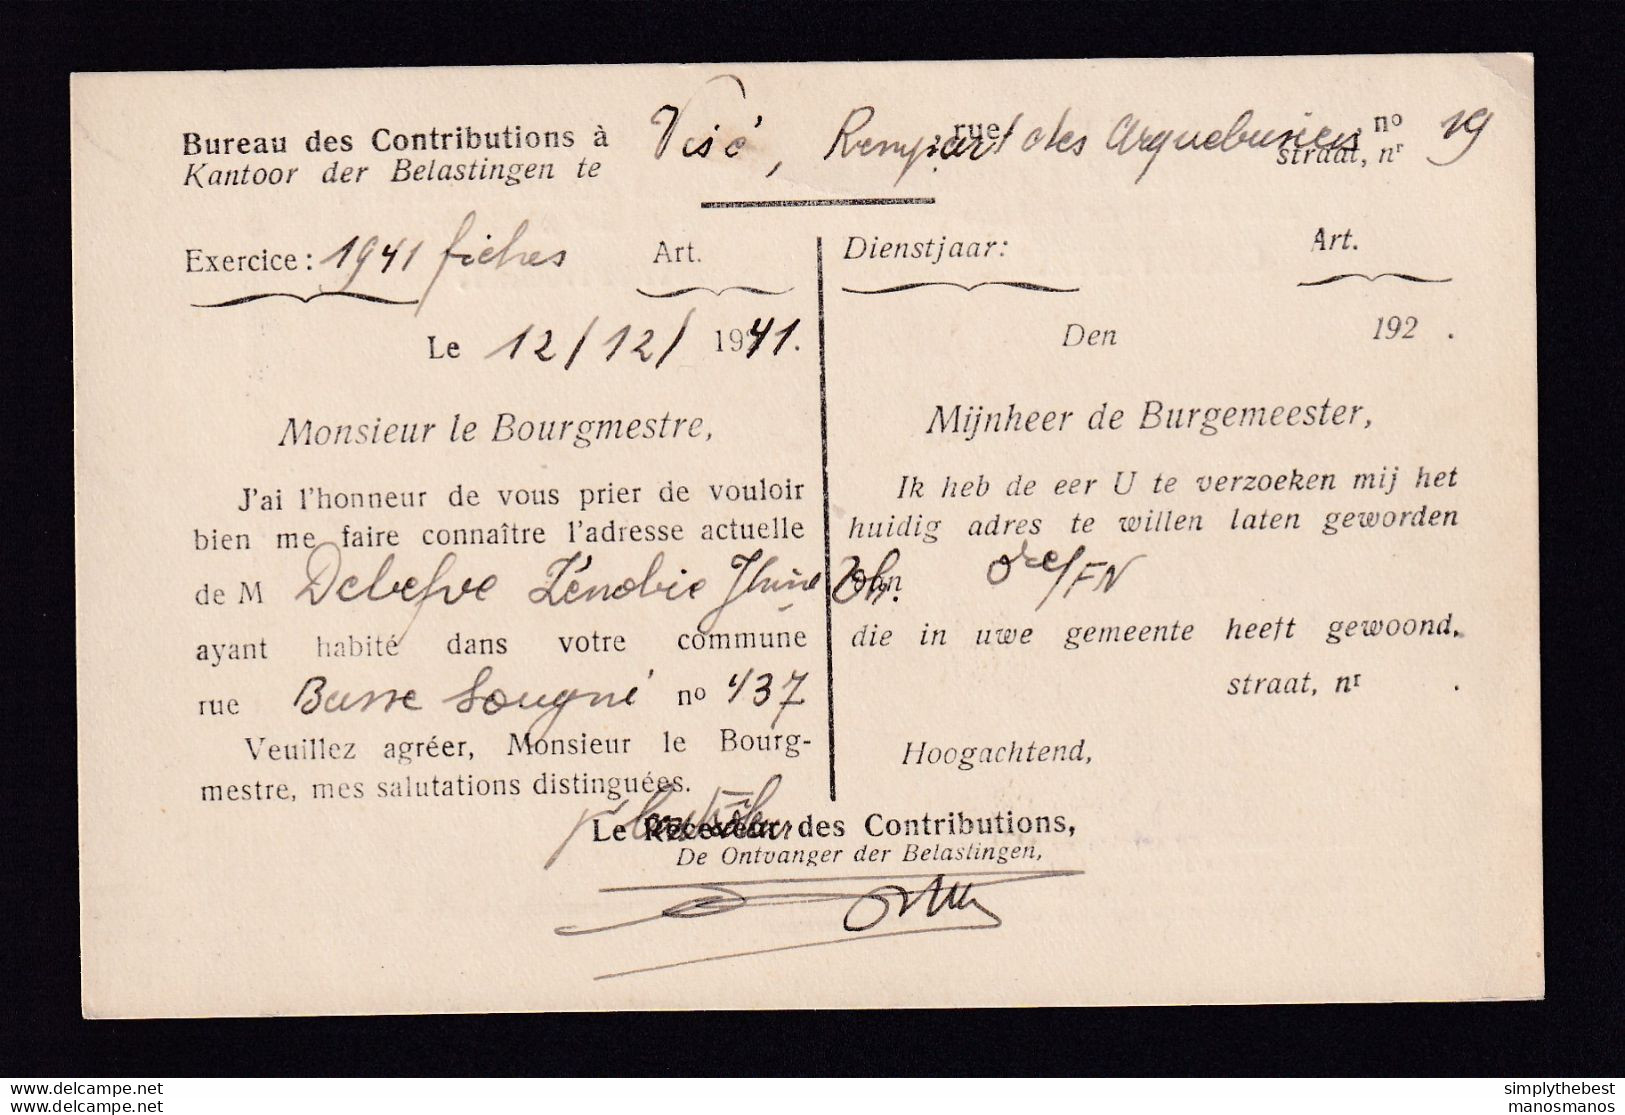 Bureau des Contributions à Visé, rue Rempart des Arquebusiers, nº 19
Kantoor der Belastingen te straat, nr
Exercice : 1941 fiches Art.
Le 12/12/ 1941.
Monsieur le Bourgmestre,
J'ai l'honneur de vous prier de vouloir
bien me faire connaître l'adresse actuelle
de M Delefve Zénobie
ayant habité dans votre commune
rue Basse Sougné nº 437
Veuillez agréer, Monsieur le Bourg-
mestre, mes salutations distinguées.
Dienstjaar: Art.
Den 192 .
Mijnheer de Burgemeester,
Ik heb de eer U te verzoeken mij het
huidig adres te willen laten geworden
van /FN
die in uwe gemeente heeft gewoond,
straat, nr .
Hoogachtend,
Le Receveur des Contributions,
De Ontvanger der Belastingen,
delcampe.net
delcampe.net
simplythebest
manosmanos